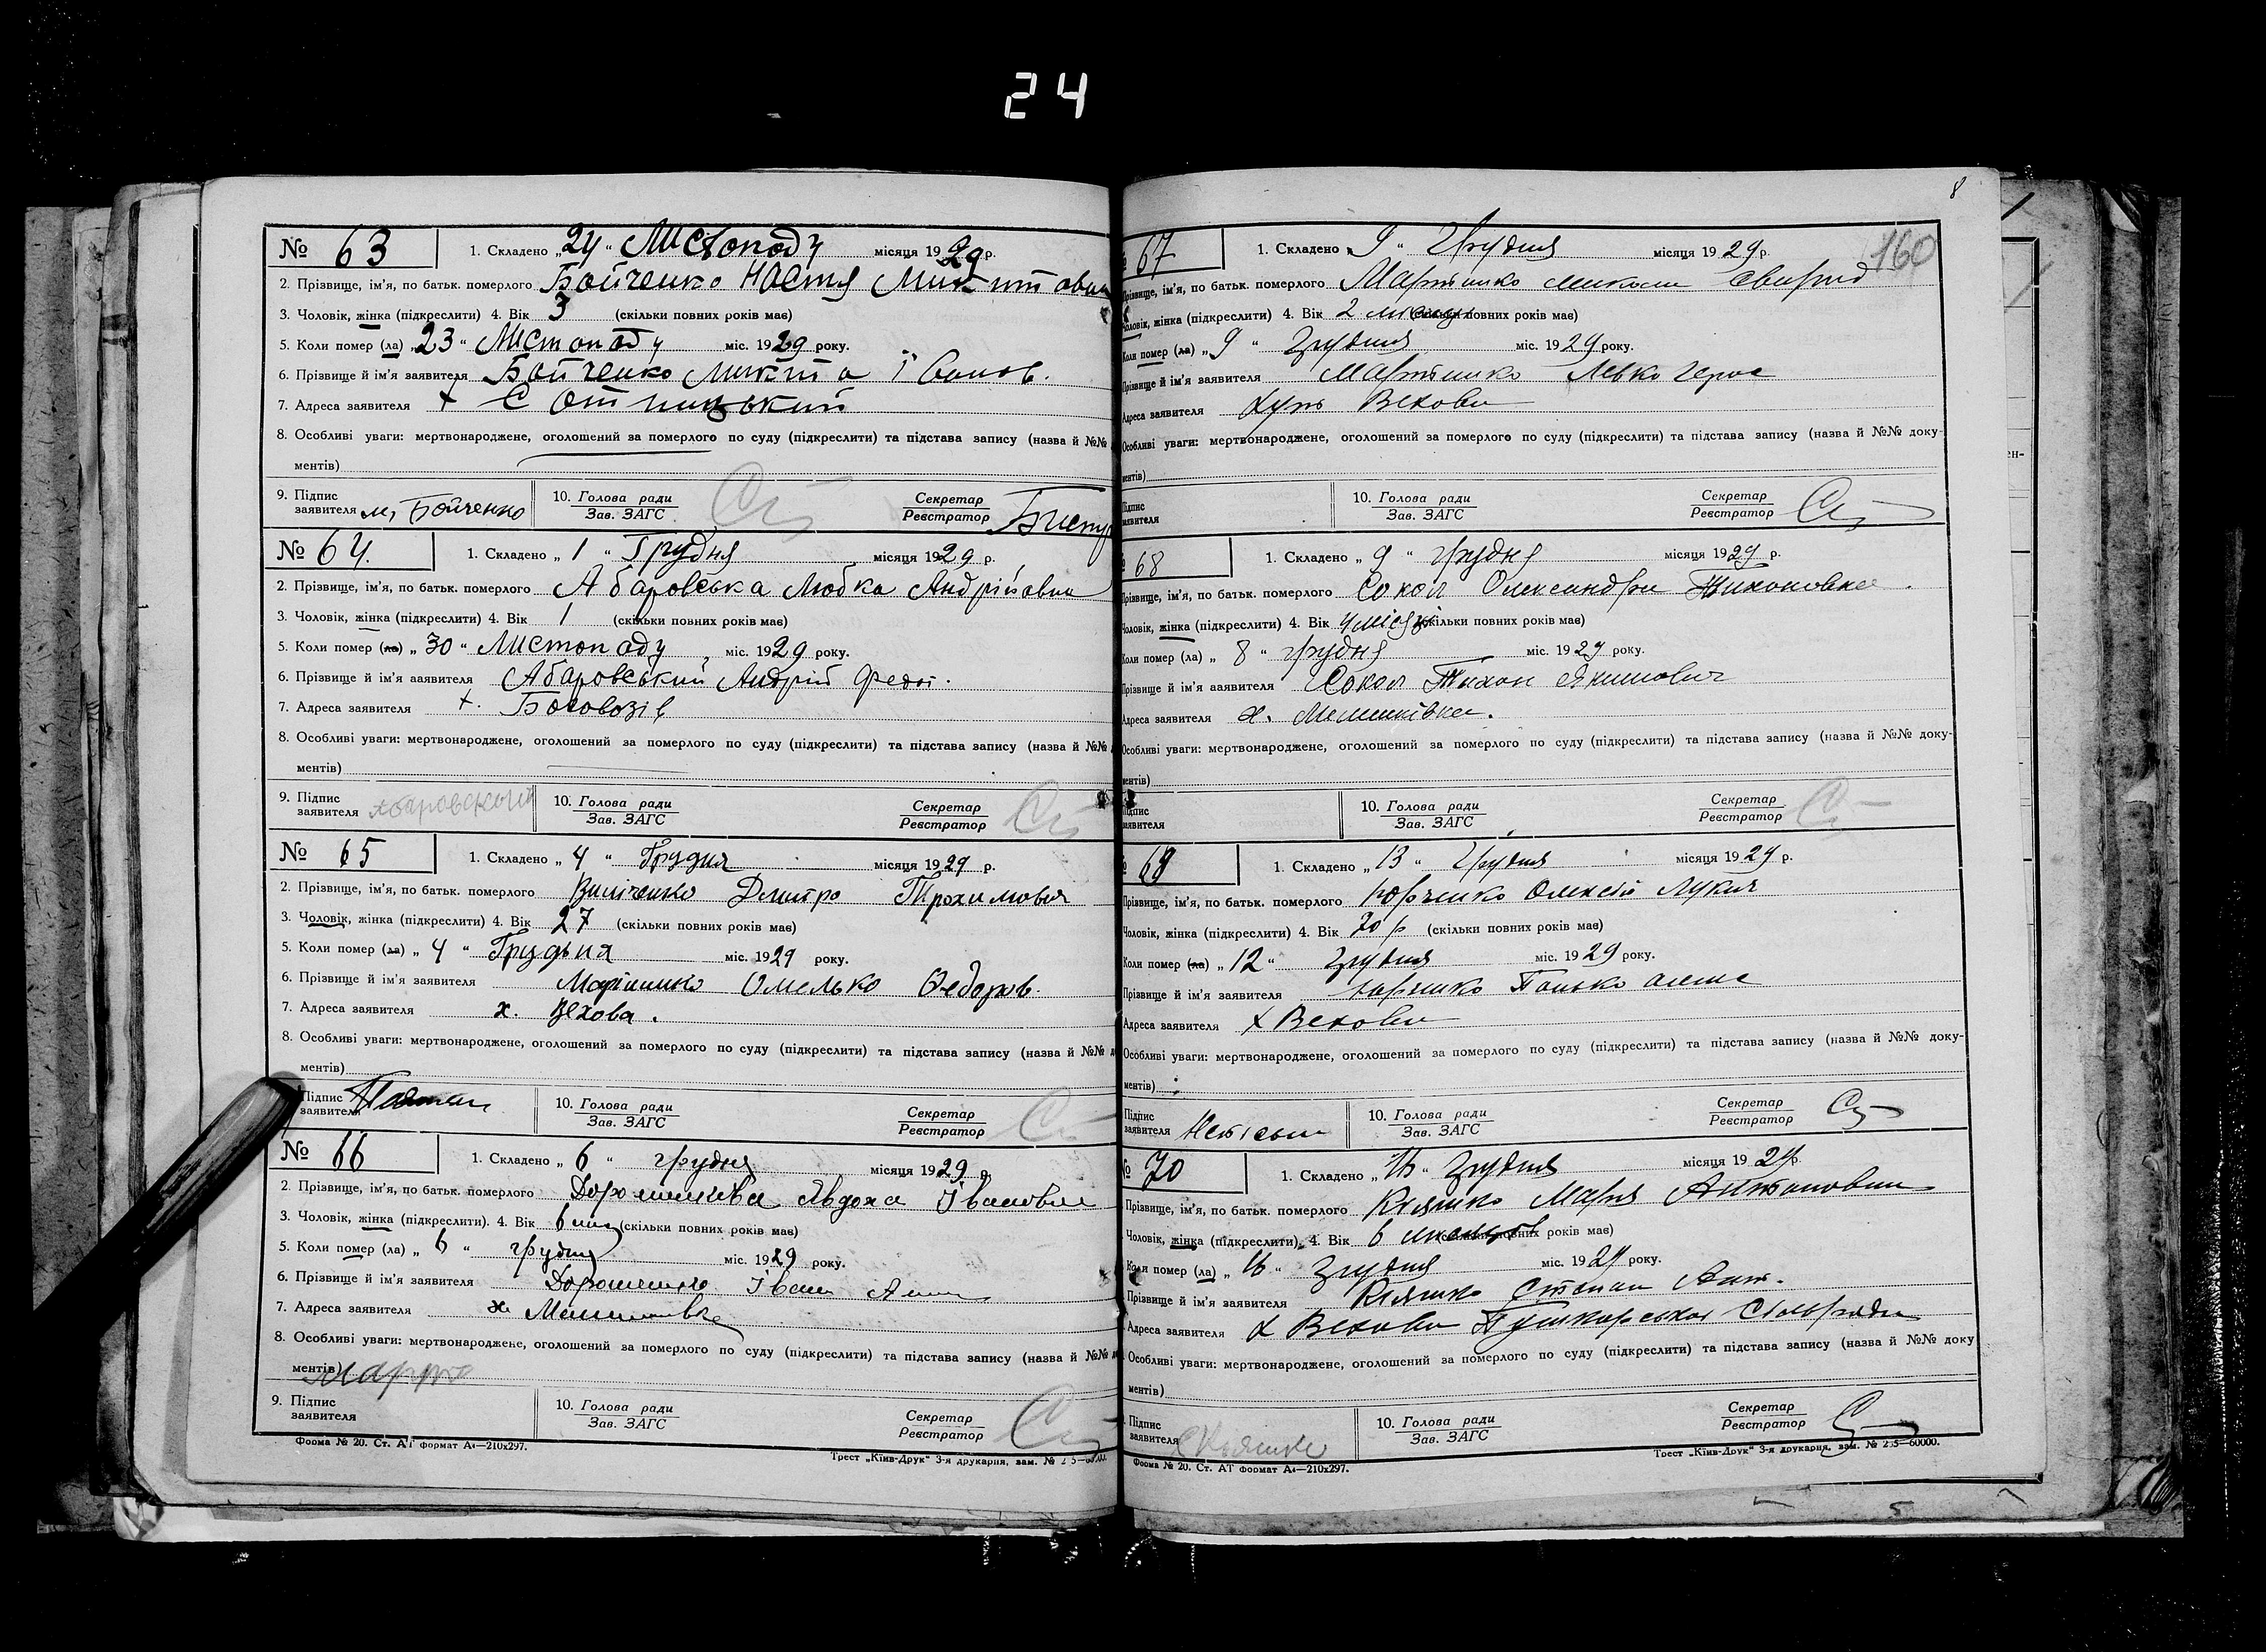 24
№ 63 1. Складено „24“ Листопаду місяця 1929 р.
2. Прізвище, ім'я, по батьк. померлого Бойченко Настя
3. Чоловік, жінка (підкреслити) 4. Вік 3 (скільки повних років має)
5. Коли помер (ла) „23“ Листопаду міс. 1929 року.
6. Прізвище й ім'я заявителя Бойченко Микита Іванов.
7. Адреса заявителя х Сотницький
8. Особливі уваги: мертвонароджене, оголошений за померлого по суду (підкреслити) та підстава запису (назва й №№
ментів)
9. Підпис заявителя М. Бойченко 10. Голова ради Зав. ЗАГС Секретар Реєстратор
№ 64. 1. Складено „1“ Грудня місяця 1929 р.
2. Прізвище, ім'я, по батьк. померлого Абаровська Любка Андрійовна
3. Чоловік, жінка (підкреслити) 4. Вік 1 (скільки повних років має)
5. Коли помер (ла) „30“ Листопаду міс. 1929 року.
6. Прізвище й ім'я заявителя Абаровський Андрій Федот.
7. Адреса заявителя х. Боговозів
8. Особливі уваги: мертвонароджене, оголошений за померлого по суду (підкреслити) та підстава запису (назва й №№
ментів)
9. Підпис заявителя 10. Голова ради Зав. ЗАГС Секретар Реєстратор
№ 65 1. Складено „4“ Грудня місяця 1929 р.
2. Прізвище, ім'я, по батьк. померлого Дмитро Трохимович
3. Чоловік, жінка (підкреслити) 4. Вік 27 (скільки повних років має)
5. Коли помер (ла) „4“ Грудня міс. 1929 року.
6. Прізвище й ім'я заявителя Омелько Федоров.
7. Адреса заявителя х. Вехова.
8. Особливі уваги: мертвонароджене, оголошений за померлого по суду (підкреслити) та підстава запису (назва й №№
ментів)
Підпис заявителя 10. Голова ради Зав. ЗАГС Секретар Реєстратор
№ 66 1. Складено „6“ грудня місяця 1929 р.
2. Прізвище, ім'я, по батьк. померлого Явдоха Івановна
3. Чоловік, жінка (підкреслити). 4. Вік 6 (скільки повних років має)
5. Коли помер (ла) „6“ грудня міс. 1929 року.
6. Прізвище й ім'я заявителя Дорошенко Іван
7. Адреса заявителя х.
8. Особливі уваги: мертвонароджене, оголошений за померлого по суду (підкреслити) та підстава запису (назва й №№
ментів)
9. Підпис заявителя 10. Голова ради Зав. ЗАГС Секретар Реєстратор
Форма № 20. Ст. АТ формат А₄—210x297. Трест „Київ-Друк“ 3-я друкарня, зам.
8
160
67 1. Складено „9“ Грудня місяця 1929 р.
Прізвище, ім'я, по батьк. померлого Микола Свирид
Чоловік, жінка (підкреслити) 4. Вік 2 (скільки повних років має)
Коли помер (ла) „9“ Грудня міс. 1929 року.
Прізвище й ім'я заявителя Левко
Адреса заявителя Хутъ Вехова
Особливі уваги: мертвонароджене, оголошений за померлого по суду (підкреслити) та підстава запису (назва й №№ доку-
ментів)
Підпис заявителя 10. Голова ради Зав. ЗАГС Секретар Реєстратор
68 1. Складено „9“ грудня місяця 1929 р.
Прізвище, ім'я, по батьк. померлого Сокол Олександра Тихоновна.
Чоловік, жінка (підкреслити) 4. Вік 4 місяці (скільки повних років має)
Коли помер (ла) „8“ грудня міс. 1929 року.
Прізвище й ім'я заявителя Сокол Тихон Якимович
Адреса заявителя х.
Особливі уваги: мертвонароджене, оголошений за померлого по суду (підкреслити) та підстава запису (назва й №№ доку-
ментів)
Підпис заявителя 10. Голова ради Зав. ЗАГС Секретар Реєстратор
69 1. Складено „13“ Грудня місяця 1929 р.
Прізвище, ім'я, по батьк. померлого Юрченко Олексій Лукич
Чоловік, жінка (підкреслити) 4. Вік 70 р (скільки повних років має)
Коли помер (ла) „12“ Грудня міс. 1929 року.
Прізвище й ім'я заявителя Юрченко Панько
Адреса заявителя х Вехова
Особливі уваги: мертвонароджене, оголошений за померлого по суду (підкреслити) та підстава запису (назва й №№ доку-
ментів)
Підпис заявителя 10. Голова ради Зав. ЗАГС Секретар Реєстратор
№ 70 1. Складено „16“ Грудня місяця 1929 р.
Прізвище, ім'я, по батьк. померлого Кияшко Марія Антоновна
Чоловік, жінка (підкреслити) 4. Вік 6 (скільки повних років має)
Коли помер (ла) „16“ Грудня міс. 1929 року.
Прізвище й ім'я заявителя Кияшко Степан Ант.
Адреса заявителя х Вехова Пушкарської Сільради
Особливі уваги: мертвонароджене, оголошений за померлого по суду (підкреслити) та підстава запису (назва й №№ доку
ментів)
Підпис заявителя Кияшко 10. Голова ради Зав. ЗАГС Секретар Реєстратор
Форма № 20. Ст. АТ формат А₄—210x297. Трест „Київ-Друк“ 3-я друкарня, зам. № 235—60000.